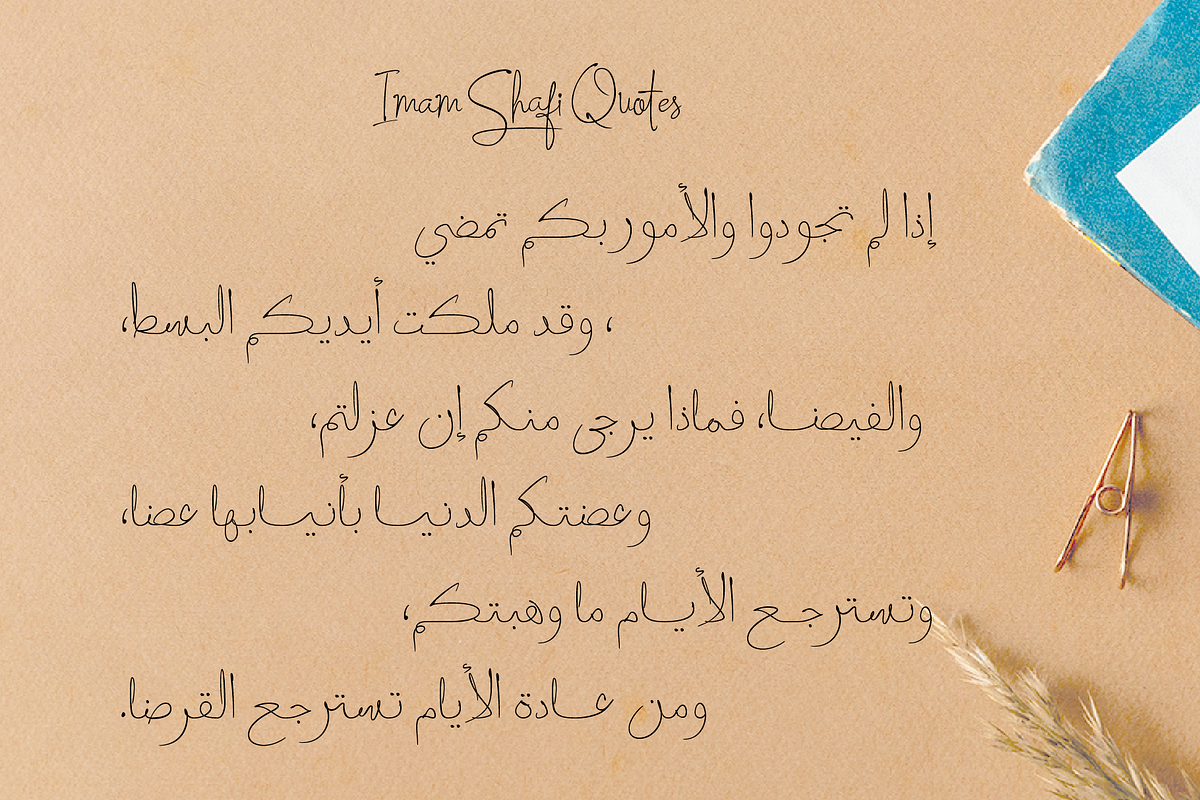 Imam Shafi Quotes
إذا لم تجودوا والأمور بكم تمضي
، وقد ملكت أيديكم البسط،
والفيضا، فماذا يرجى منكم إن عزلتم،
وعضتكم الدنيا بأنيابها عضا،
وتسترجع الأيام ما وهبتكم،
ومن عادة الأيام تسترجع القرضا.